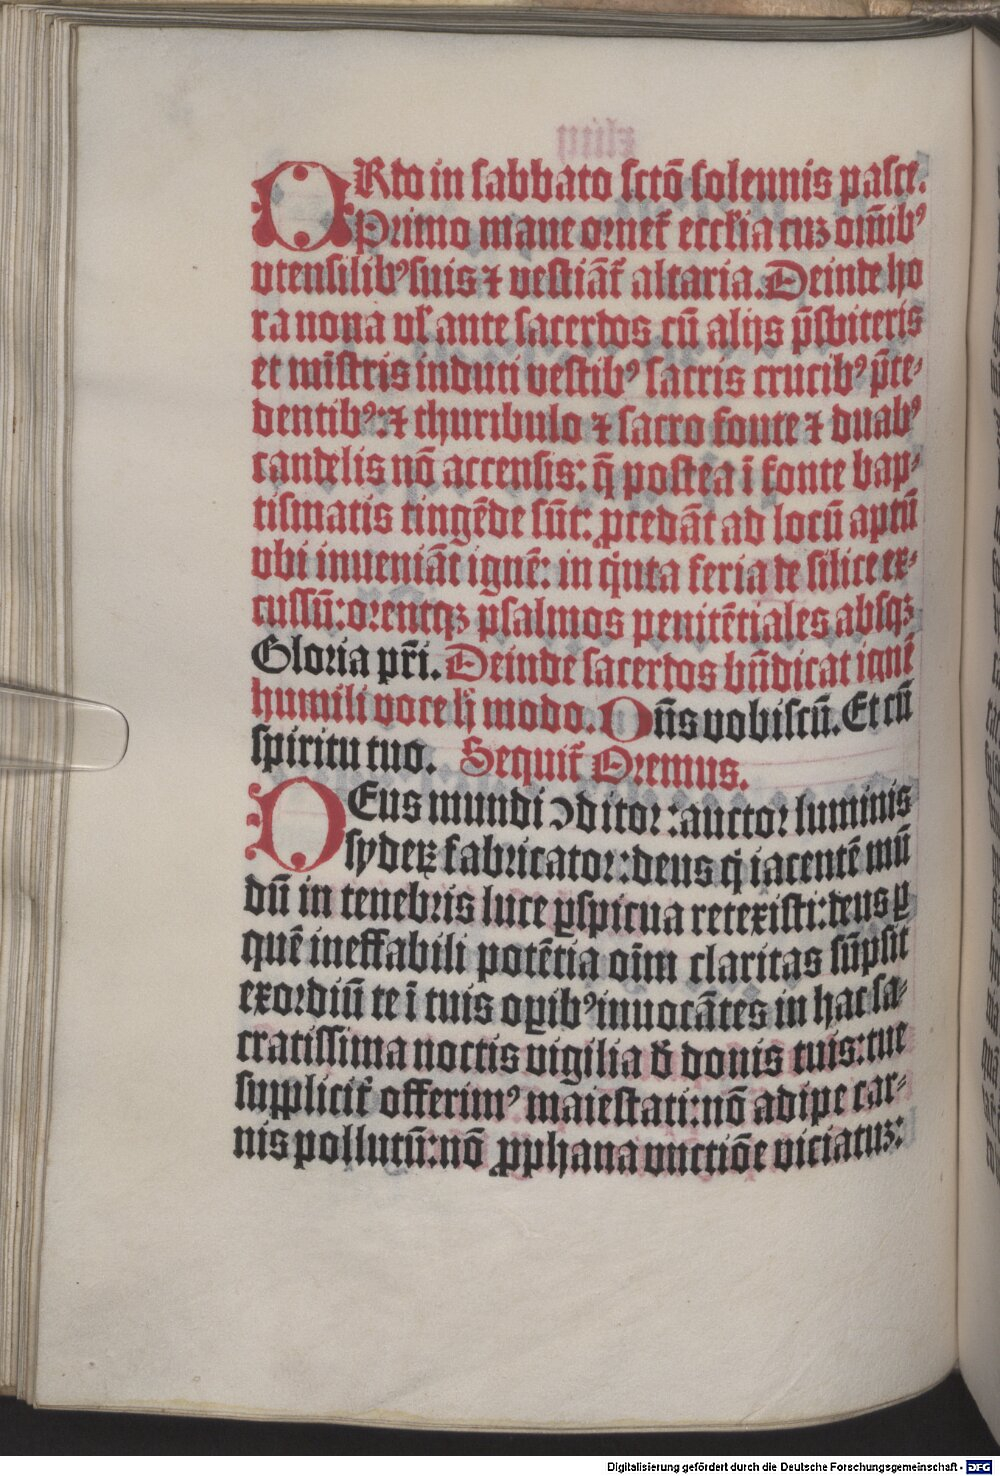 ORdo in sabbato sctō solennis pasce.
Primo mane ornet᷑ eccłia cuꝫ om̄ibꝰ
vtensilibꝰ suis ⁊ vestiāt᷑ altaria. Deinde ho
ra nona vl᷑ ante sacerdos cū alijs p̄sbiteris
et mīstris induti vestibꝰ sacris crucibꝰ p̄ce⸗
dentibꝰ: ⁊ thuribulo ⁊ sacro fonte ⁊ duabꝰ
candelis nō accensis: q̄ postea ī fonte bap⸗
tismatis tingēde sūt: ꝓcedāt ad locū aptū
vbi inueniāt ignē: in q̇nta feria de silice ex⸗
cussū: orentqꝫ psalmos penitētiales absqꝫ
Gloria pr̄i. Deinde sacerdos bn̄dicat ignē
humili voce h̄ modo. Dn̄s vobiscū. Et cū
spiritu tuo. Sequit᷑ Oremus.
DEus mundi ↄditor: auctor luminis
syderꝝ fabricator: deus q̇ iacentē mū
dū in tenebris luce ꝑspicua retexisti: deus ꝑ
quē ineffabili potētia oīm claritas sūpsit
exordiū te ī tuis oꝑibꝰ inuocātes in hac sa⸗
cratissima noctis vigilia đ donis tuis: tue
supplicit᷑ offerimꝰ maiestati: nō adipe car⸗
nis pollutū: nō ꝓphana vnctiōe viciatuꝫ:
Digitalisierung gefördert durch die Deutsche Forschungsgemeinschaft - DFG